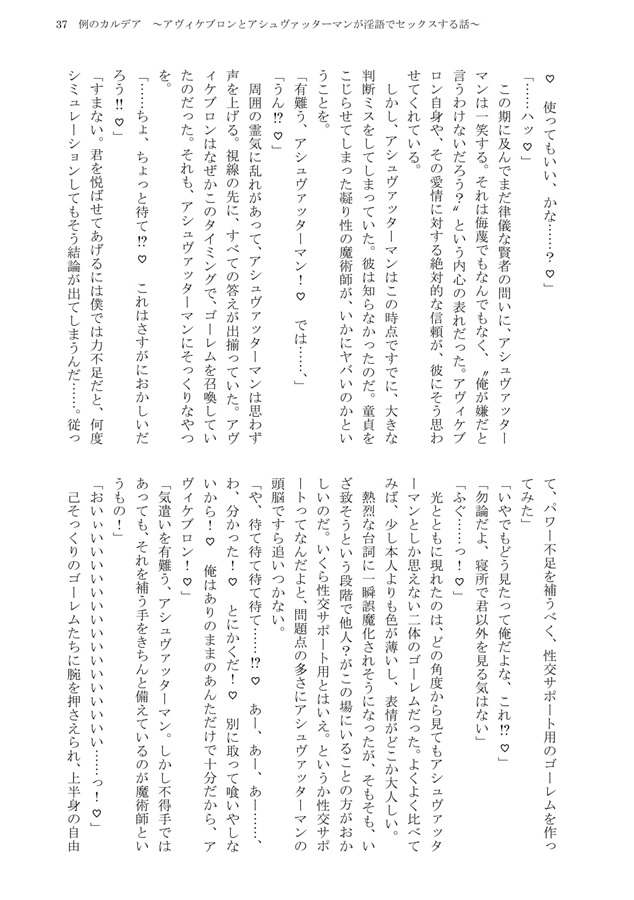 37　例のカルデア　～アヴィケブロンとアシュヴァッターマンが淫語でセックスする話～
♡　使ってもいい、かな……？♡」
「……ハッ♡」
　この期に及んでまだ律儀な賢者の問いに、アシュヴァッター
マンは一笑する。それは侮蔑でもなんでもなく、〝俺が嫌だと
言うわけないだろう？〟という内心の表れだった。アヴィケブ
ロン自身や、その愛情に対する絶対的な信頼が、彼にそう思わ
せてくれている。
　しかし、アシュヴァッターマンはこの時点ですでに、大きな
判断ミスをしてしまっていた。彼は知らなかったのだ。童貞を
こじらせてしまった凝り性の魔術師が、いかにヤバいのかとい
うことを。
「有難う、アシュヴァッターマン！♡　では……、
「うん⁉♡」
　周囲の霊気に乱れがあって、アシュヴァッターマンは思わず
声を上げる。視線の先に、すべての答えが出揃っていた。アヴ
ィケブロンはなぜかこのタイミングで、ゴーレムを召喚してい
たのだった。それも、アシュヴァッターマンにそっくりなやつ
を。
「……ちょ、ちょっと待て⁉♡　これはさすがにおかしいだ
ろう‼♡」
「すまない。君を悦ばせてあげるには僕では力不足だと、何度
シミュレーションしてもそう結論が出てしまうんだ……。従っ
て、パワー不足を補うべく、性交サポート用のゴーレムを作っ
てみた」
「いやでもどう見たって俺だよな、これ⁉♡」
「勿論だよ、寝所で君以外を見る気はない」
「ふぐ……っ！♡」
　光とともに現れたのは、どの角度から見てもアシュヴァッタ
ーマンとしか思えない二体のゴーレムだった。よくよく比べて
みば、少し本人よりも色が薄いし、表情がどこか大人しい。
　熱烈な台詞に一瞬誤魔化されそうになったが、そもそも、い
ざ致そうという段階で他人？がこの場にいることの方がおか
しいのだ。いくら性交サポート用とはいえ。というか性交サポ
ートってなんだよと、問題点の多さにアシュヴァッターマンの
頭脳ですら追いつかない。
「や、待て待て待て待て……⁉♡　あー、あー、あー……、
わ、分かった！♡　とにかくだ！♡　別に取って喰いやしな
いから！♡　俺はありのままのあんただけで十分だから、ア
ヴィケブロン！♡」
「気遣いを有難う、アシュヴァッターマン。しかし不得手では
あっても、それを補う手をきちんと備えているのが魔術師とい
うもの！」
「おいぃいいいいいいいいいいいいいいい……っ！♡」
　己そっくりのゴーレムたちに腕を押さえられ、上半身の自由